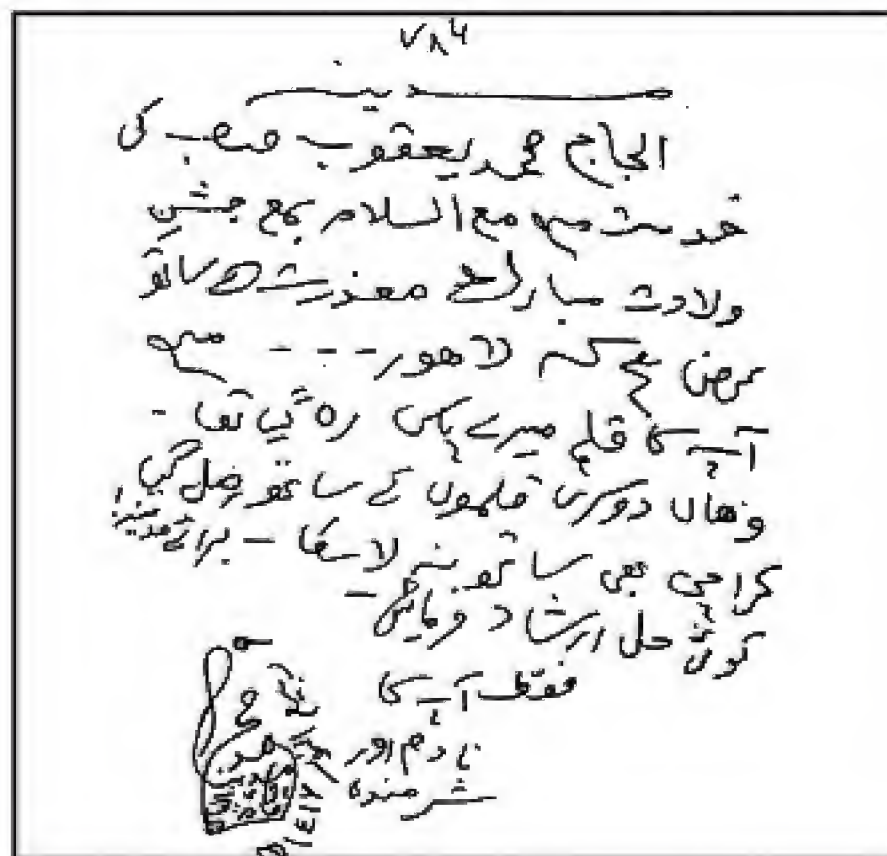 ۷۸۶
مدینہ
الحاج محمد یعقوب صاحب کی
خدمت میں مع السلام بمع جشنِ
ولادت مبارک معذرت کے ساتھ
عرض ہے کہ لاھور - - - میں
آپ کا قلم میرے پاس رہ گیا تھا -
وھاں دوسری قلموں کے ساتھ مل گیا
کراچی بھی ساتھ نہ لا سکا - برائے مدینہ!
کوئی حل ارشاد فرمائیں -
فقط آپ کا
نادم اور
شرمندہ
۱٤۱۷ھ